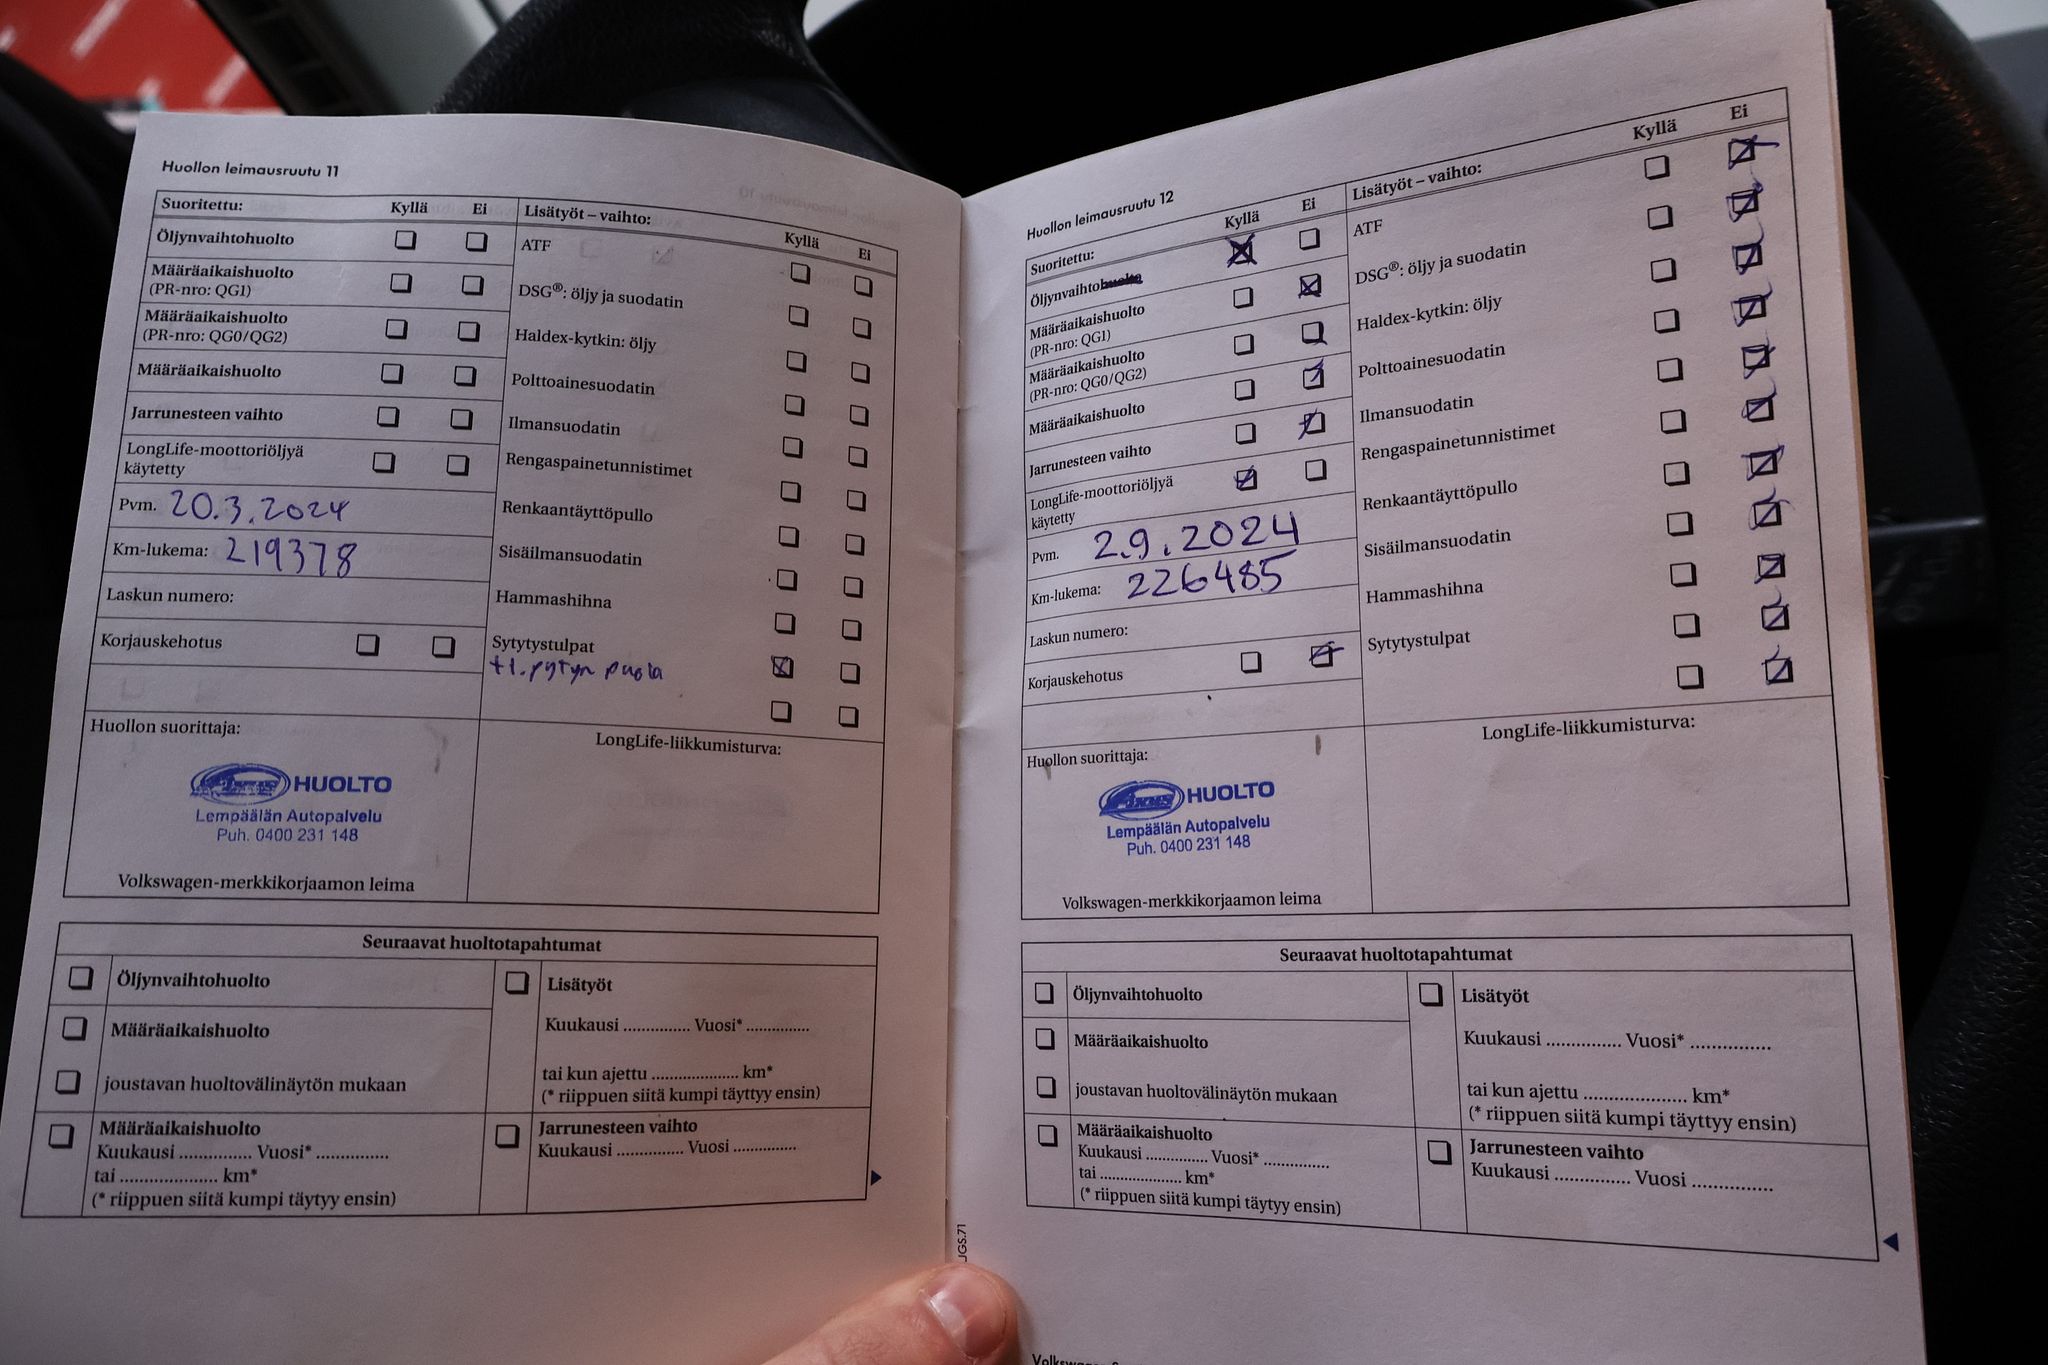 Huollon leimausruutu 11
Suoritettu: Kyllä Ei
Öljynvaihtohuolto
Määräaikaishuolto
(PR-nro: QG1)
Määräaikaishuolto
(PR-nro: QG0/QG2)
Määräaikaishuolto
Jarrunesteen vaihto
LongLife-moottoriöljyä
käytetty
Pvm. 20.3.2024
Km-lukema: 219378
Laskun numero:
Korjauskehotus
Lisätyöt – vaihto: Kyllä Ei
ATF
DSG®: öljy ja suodatin
Haldex-kytkin: öljy
Polttoainesuodatin
Ilmansuodatin
Rengaspainetunnistimet
Renkaantäyttöpullo
Sisäilmansuodatin
Hammashihna
Sytytystulpat
+1. pytyn puola
Huollon suorittaja:
HUOLTO
Lempäälän Autopalvelu
Puh. 0400 231 148
Volkswagen-merkkikorjaamon leima
LongLife-liikkumisturva:
Seuraavat huoltotapahtumat
Öljynvaihtohuolto
Määräaikaishuolto
joustavan huoltovälinäytön mukaan
Määräaikaishuolto
Kuukausi .............. Vuosi* ..............
tai ................... km*
(* riippuen siitä kumpi täytyy ensin)
Lisätyöt
Kuukausi .............. Vuosi* .............
tai kun ajettu .................... km*
(* riippuen siitä kumpi täyttyy ensin)
Jarrunesteen vaihto
Kuukausi .............. Vuosi .............
JGS.71
Huollon leimausruutu 12
Suoritettu: Kyllä Ei
Öljynvaihtohuolto
Määräaikaishuolto
(PR-nro: QG1)
Määräaikaishuolto
(PR-nro: QG0/QG2)
Määräaikaishuolto
Jarrunesteen vaihto
LongLife-moottoriöljyä
käytetty
Pvm. 2.9.2024
Km-lukema: 226485
Laskun numero:
Korjauskehotus
Lisätyöt – vaihto: Kyllä Ei
ATF
DSG®: öljy ja suodatin
Haldex-kytkin: öljy
Polttoainesuodatin
Ilmansuodatin
Rengaspainetunnistimet
Renkaantäyttöpullo
Sisäilmansuodatin
Hammashihna
Sytytystulpat
Huollon suorittaja:
HUOLTO
Lempäälän Autopalvelu
Puh. 0400 231 148
Volkswagen-merkkikorjaamon leima
LongLife-liikkumisturva:
Seuraavat huoltotapahtumat
Öljynvaihtohuolto
Määräaikaishuolto
joustavan huoltovälinäytön mukaan
Määräaikaishuolto
Kuukausi ............. Vuosi* ..............
tai .................... km*
(* riippuen siitä kumpi täytyy ensin)
Lisätyöt
Kuukausi .............. Vuosi* ...............
tai kun ajettu .................... km*
(* riippuen siitä kumpi täyttyy ensin)
Jarrunesteen vaihto
Kuukausi .............. Vuosi ...............